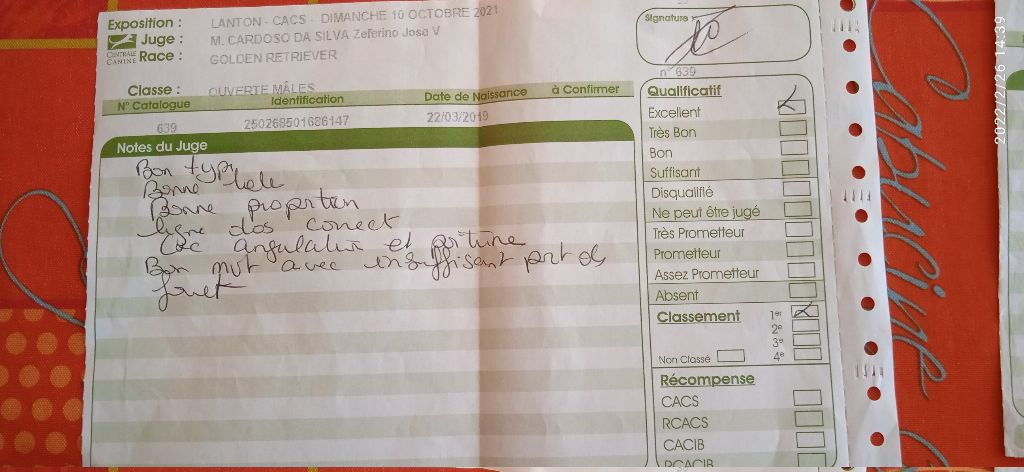 Exposition : LANTON - CACS - DIMANCHE 10 OCTOBRE 2021
Juge : M. CARDOSO DA SILVA Zeferino Jose V
CENTRALE CANINE
Race : GOLDEN RETRIEVER
Classe : OUVERTE MÂLES
N° Catalogue Identification Date de Naissance à Confirmer
639 250268501686147 22/03/2019
Notes du Juge
Bon type
Bonne tete
Bonne proportion
ligne dos correct
angulation et poitrine
Bon mvt avec insuffisant port de
fouet
Signature
n° 639
Qualificatif
Excellent
Très Bon
Bon
Suffisant
Disqualifié
Ne peut être jugé
Très Prometteur
Prometteur
Assez Prometteur
Absent
Classement 1er
2e
3e
Non Classé 4e
Récompense
CACS
RCACS
CACIB
RCACIB
2022/2/26 14:39